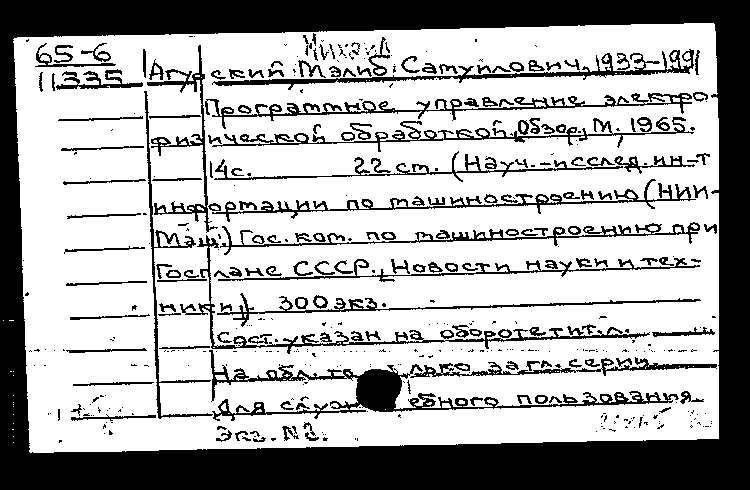 Михаил
65-6
11335
Агурский, Мэлиб Самуилович, 1933-1991
Программное управление электро-
физической обработкой. Обзор. М., 1965.
14с. 22 см. (Науч.-исслед. ин-т
информации по машиностроению (НИИ-
Маш.) Гос. ком. по машиностроению при
Госплане СССР. Новости науки и тех-
ники). 300 экз.
Сост. указан на обороте тит. л.
На обл. только загл. серии.
Для служебного пользования.
Экз. №2.